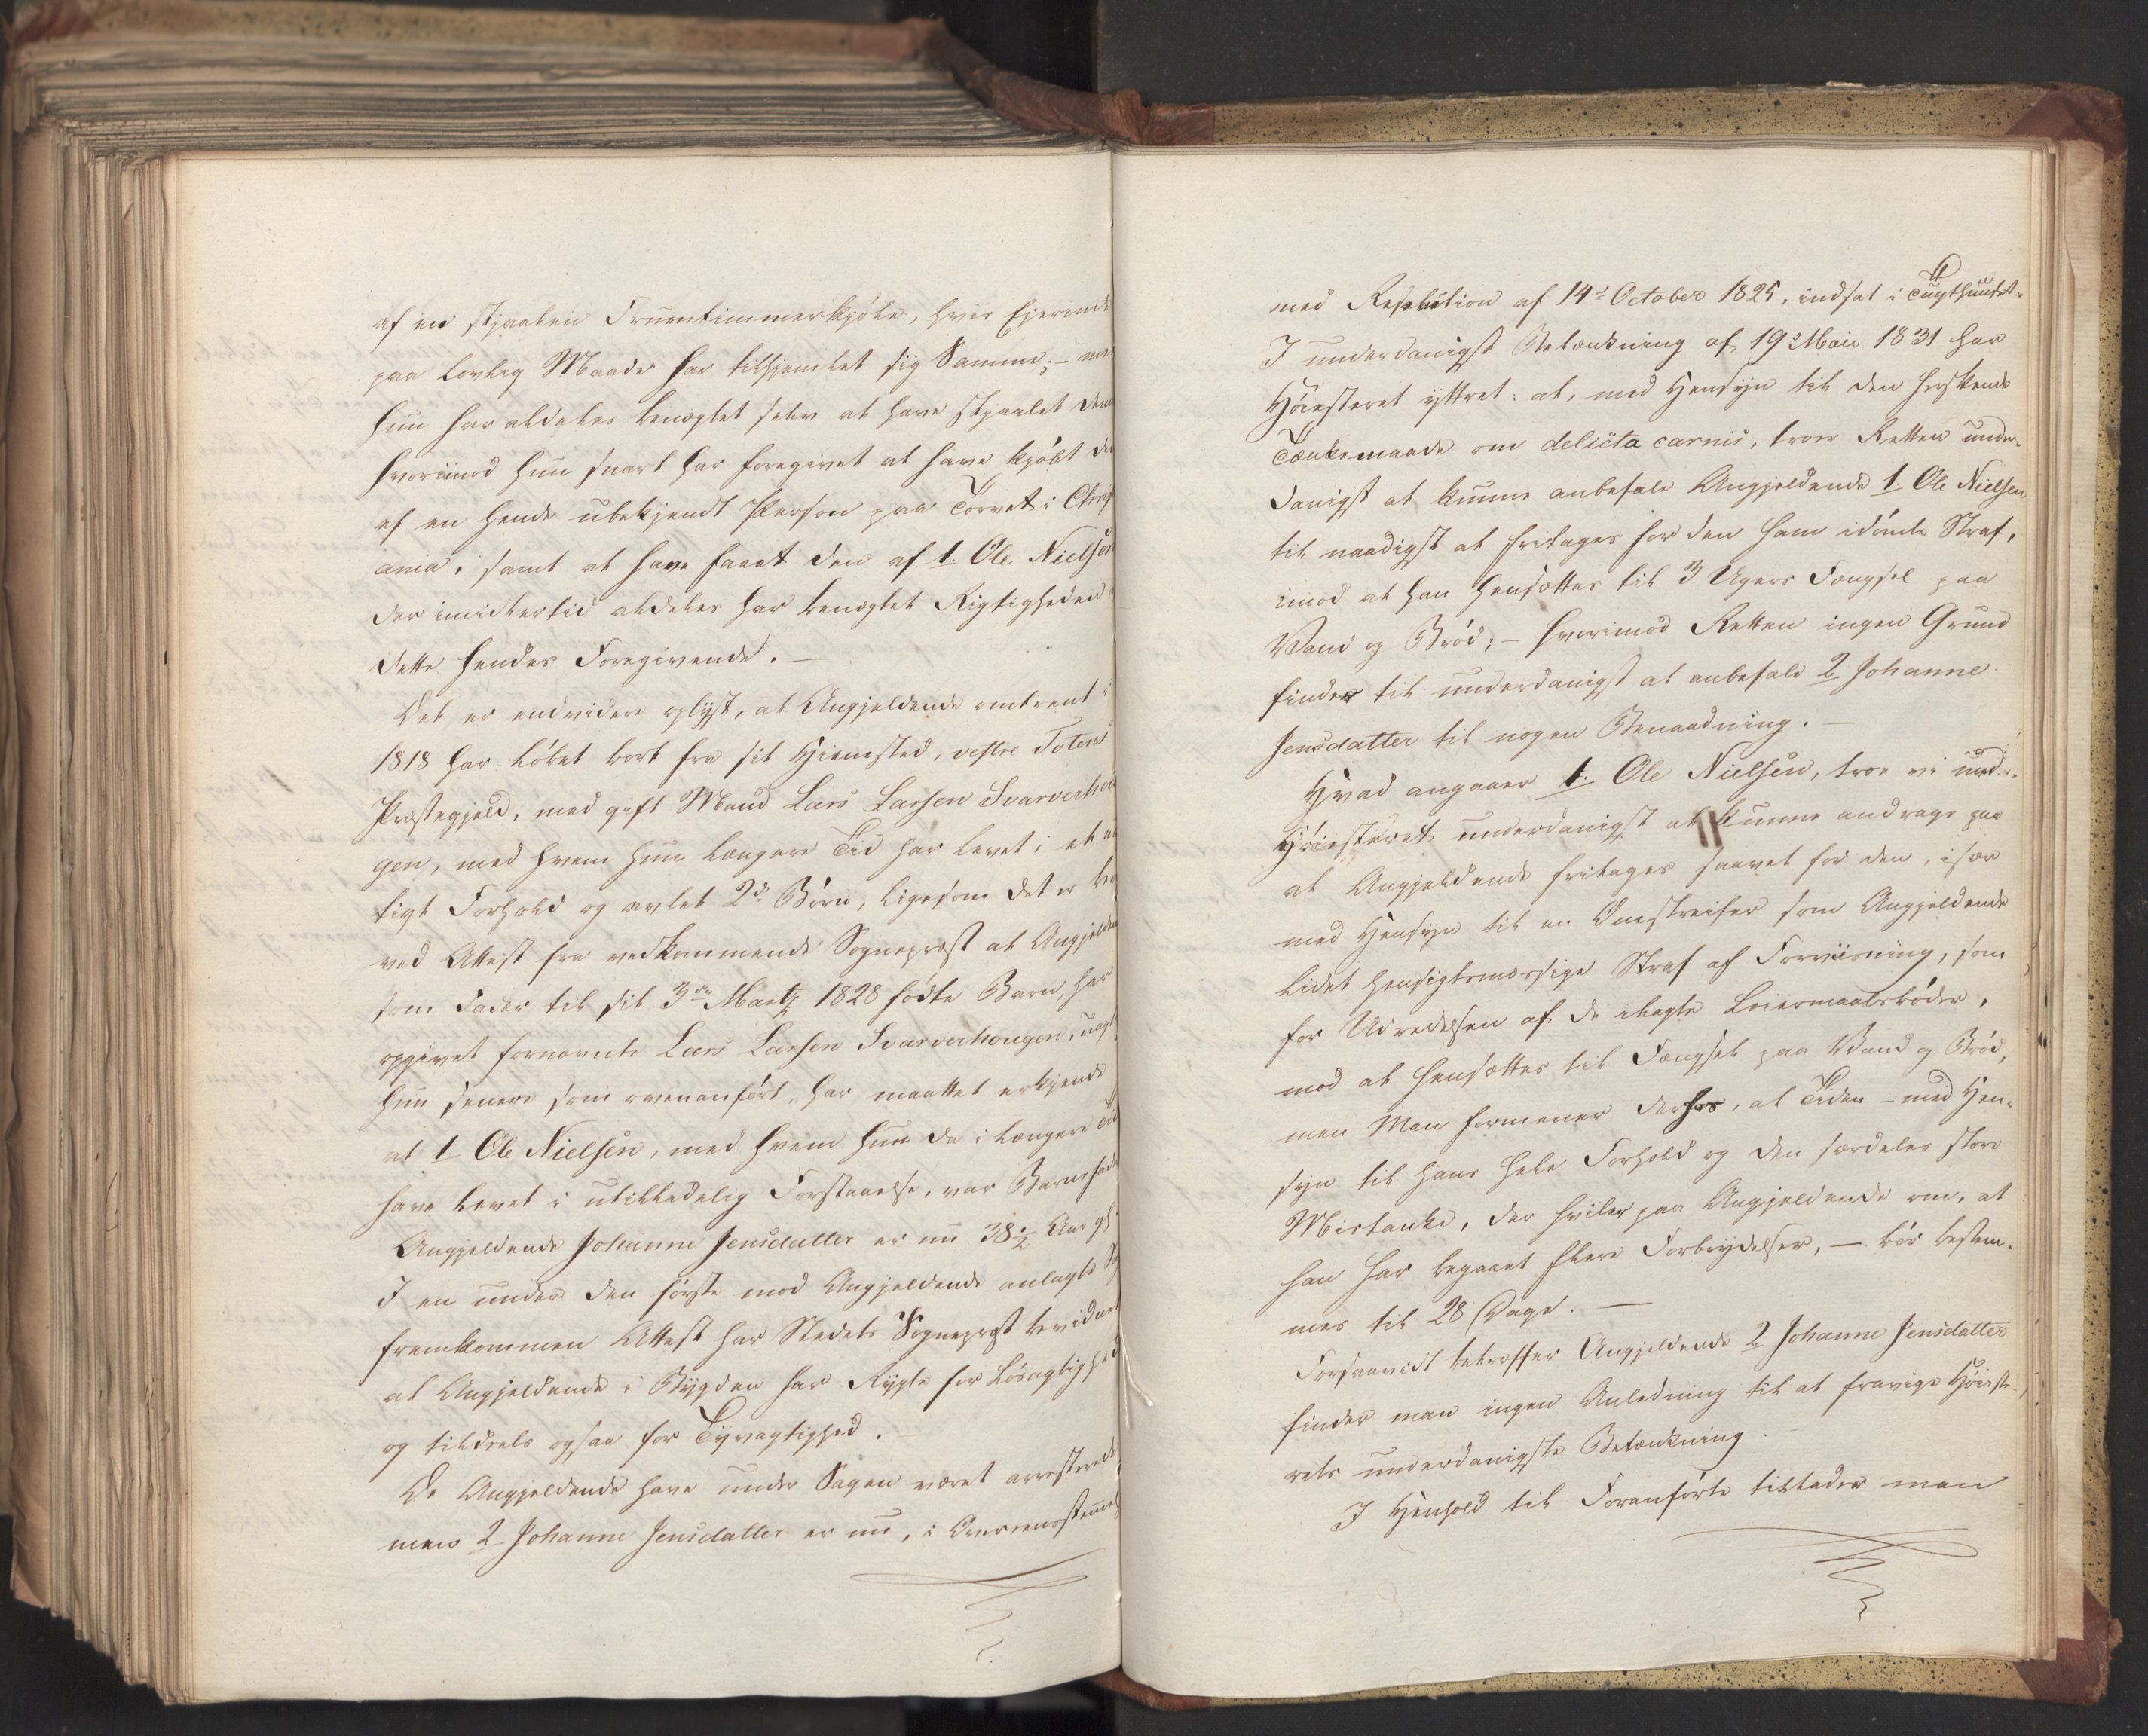 af en stjaalen Fruentimmerkjole, hvis Ejerinde
paa lovlig Maade har tilhjemlet sig Samme; – men
hun har aldeles benægtet selv at have stjaalet den
hvorimod hun snart har foregivet at have kjöbt den
af en hende ubekjendt Person paa Torvet i Chri
ania, samt at have faaet den af 1. Ole Nielsen
der imidlertid aldeles har benægtet Rigtigheden a
dette hendes Foregivende. –
Det er endvidere oplyst, at Angjeldende omtrent i
1818 har löbet bort fra sit Hjemsted, vestre Totens
Præstegjeld, med gift Mand Lars Larsen Svarverhou
gen, med hvem hun længere Tid har levet i et u
tigt Forhold og avlet 2de Börn, ligesom det er be
ved Attest fra vedkommende Sognepræst at Angjelden
som Fader til sit 3die Martz 1828 födte Barn, har
opgivet fornævnte Lars Larsen Svarverhougen, uagt
hun senere som ovenanfört, har maattet erkjende
at 1 Ole Nielsen, med hvem hun da i længere Tid
have levet i utilladelig Forstaaelse, var Barnefade
Angjeldende Johanne Jensdatter er nu 38½ Aar gl
I en under den förste mod Angjeldende anlagte S
fremkommen Attest har Stedets Sognepræst bevidnet
at Angjeldende i Bygden har Rygte for Lösagtighed
og tildeels ogsaa for Tyvagtighed.
De Angjeldende have under Sagen været arresterede
men 2 Johanne Jensdatter er nu, i Overeensstemmel
med Resolution af 14de October 1825, indsat i Tugthuset.
I underdanigst Betænkning af 19 Maii 1831 har
Höiesteret yttret: at, med Hensyn til den herskende
Tænkemaade om delicta carnis, troer Retten under-
danigst at kunne anbefale Angjeldende 1. Ole Nielsen
til naadigst at fritages for den ham idömte Straf,
imod at han hensættes til 3 Ugers Fængsel paa
Vand og Bröd; – hvorimod Retten ingen Grund
finder til underdanigst at anbefale 2 Johanne
Jensdatter til nogen Benaadning. –
Hvad angaaer 1. Ole Nielsen, troe vi med
Höiesteret underdanigst at kunne andrage paa
at Angjeldende fritages saavel for den, især
med Hensyn til en Omstreifer som Angjeldende
lidet hensigtsmæssige Straf af Forviisning, som
for Udredelsen af de ilagte Leiermaalsböder,
mod at hensættes til Fængsel paa Vand og Bröd,
men Man formener derhos, at Tiden – med Hen-
syn til hans hele Forhold og den særdeles store
Mistanke, der hviler paa Angjeldende om, at
han har begaaet flere Forbrydelser, – bör bestem-
mes til 28 Dage. –
Forsaavidt betræffer Angjeldende 2 Johanne Jensdatter
finder man ingen Anledning til at fravige Höieste-
rets underdanigste Betænkning.
I Henhold til Foranförte tillader man